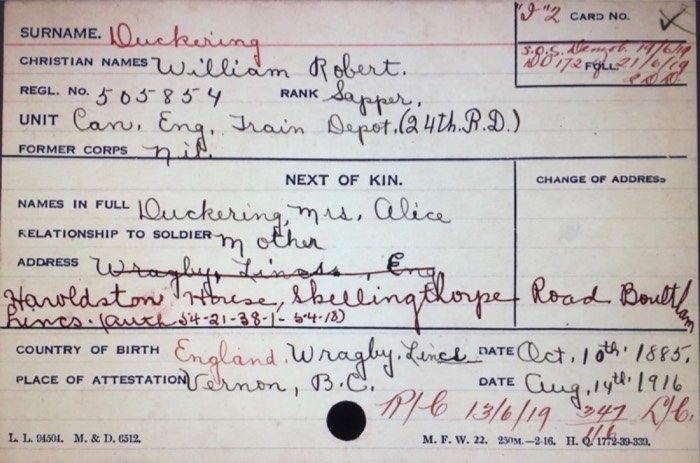 "I" 2 CARD NO. ✓
SURNAME. Duckering
S.O.S. Demob. 19/6/19
CHRISTIAN NAMES William Robert.
DO 172 FOLL. 21/6/19
REGL. No. 505854 RANK Sapper.
UNIT Can. Eng. Train Depot. (24th. R.D.)
FORMER CORPS nil.
NEXT OF KIN. CHANGE OF ADDRESS
NAMES IN FULL Duckering, Mrs. Alice
RELATIONSHIP TO SOLDIER Mother
ADDRESS Wragby, Lincs., Eng
Haroldston House, Skellingthorpe Road Boultham
Lincs. (Auth 54-21-38-1- 5-4-18)
COUNTRY OF BIRTH England. Wragby. Lincs DATE Oct. 10th. 1885
PLACE OF ATTESTATION Vernon, B.C. DATE Aug. 14th. 1916
R/C 13/6/19 347
L. L. 94504. M. & D. 6512. M. F. W. 22. 250M.—2-16. H. Q. 1772-39-339.